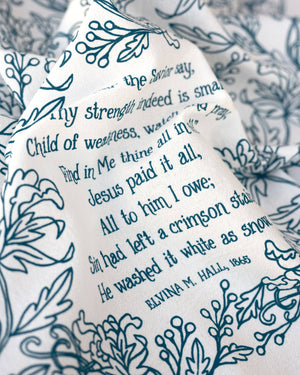 the Savior say,
Thy strength indeed is small
Child of weakness, watch
Find in Me thine all in
Jesus paid it all,
All to him I owe;
Sin had left a crimson stain
He washed it white as snow
ELVINA M. HALL, 1865